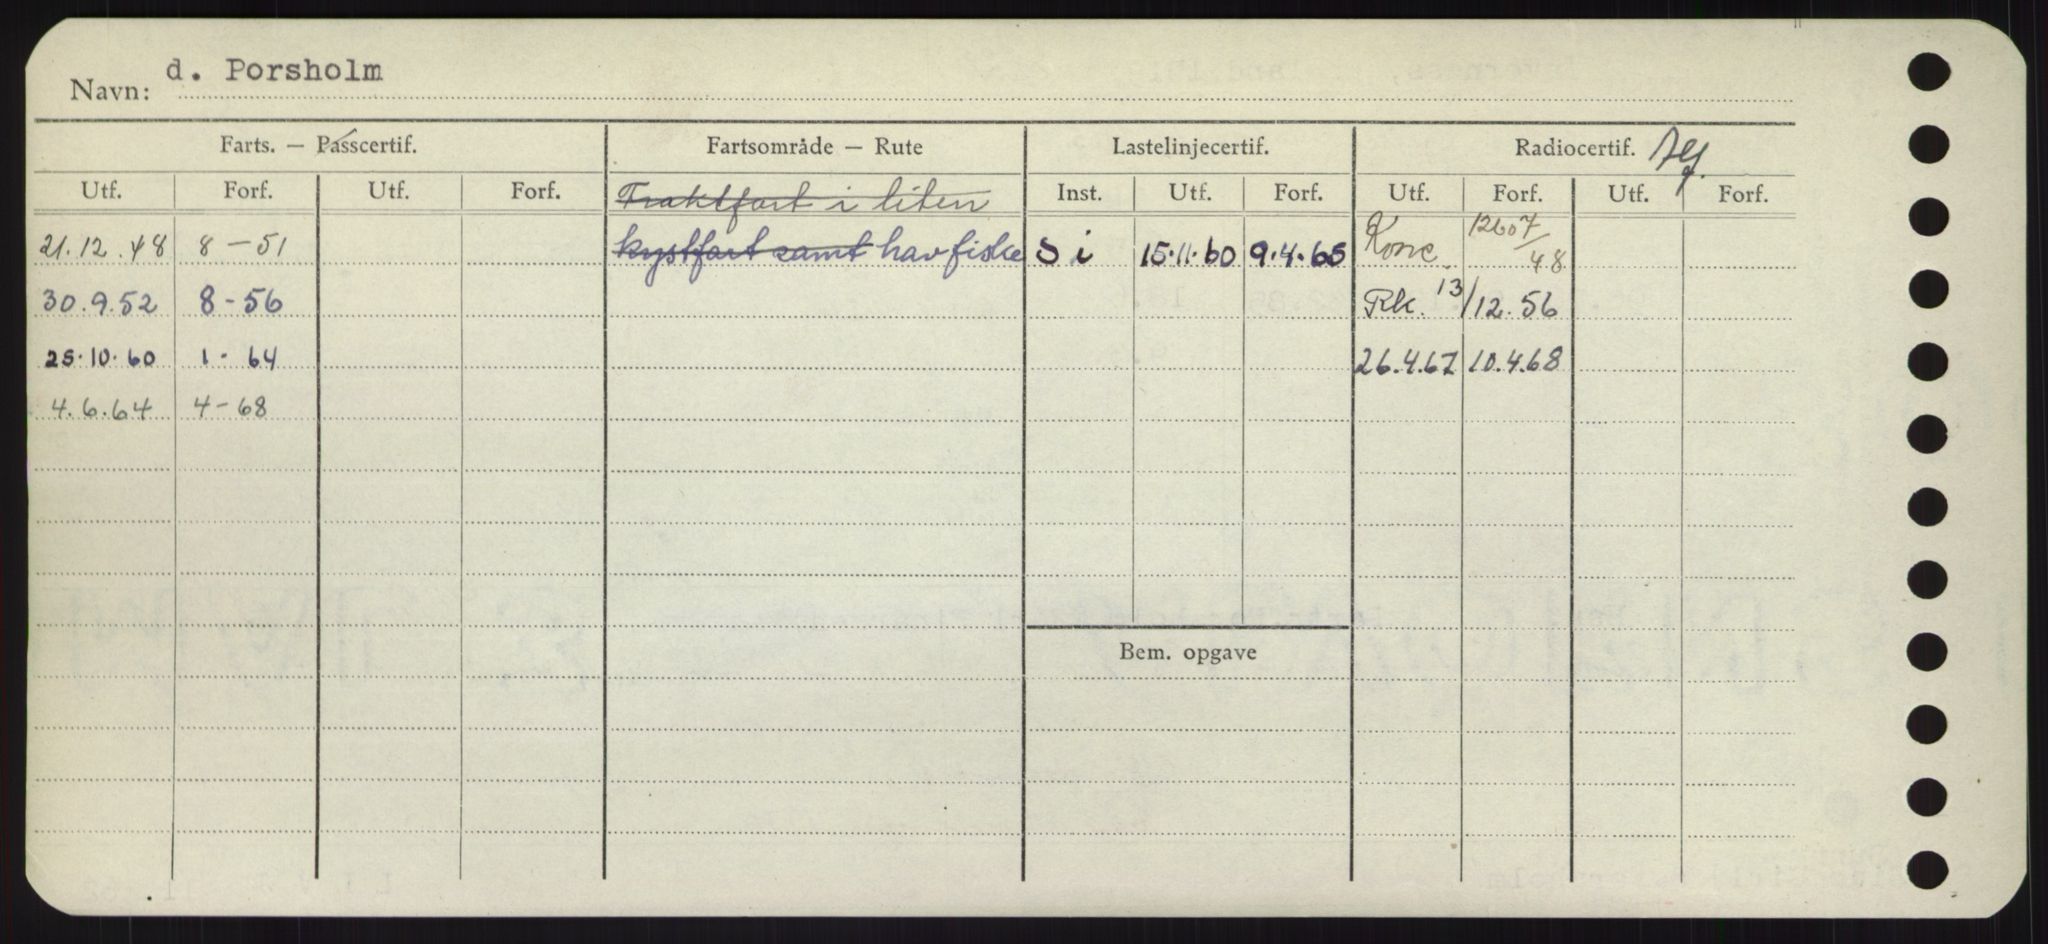 Navn: d. Porsholm
Farts. — Passcertif. Fartsområde — Rute Lastelinjecertif. Radiocertif.
Utf. Forf. Utf. Forf. Fraktfart i liten Inst. Utf. Forf. Utf. Forf. Utf. Forf.
21.12.48 8-51 kystfart samt havfiske S i 15.11.60 9.4.65 Konc. 12607/48
30.9.52 8-56 Rk. 13/12.56
25.10.60 1-64 26.4.67 10.4.68
4.6.64 4-68
Bem. opgave